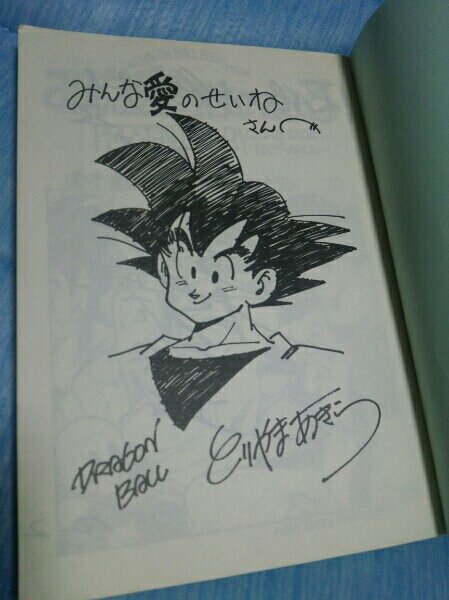 みんな愛のせいね
さんへ
DRAGON
BALL
とりやまあきら